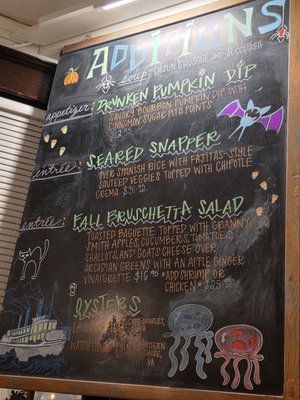 ADDITIONS
SOUP: CAJUN SAUSAGE and SUCCOTASH
appetizer:
DRUNKEN PUMPKIN DIP
SAVORY BOURBON PUMPKIN DIP with
CINNAMON SUGAR PITA POINTS
entrée:
SEARED SNAPPER
OVER SPANISH RICE WITH FAJITAS-STYLE
SAUTEED VEGGIES TOPPED WITH CHIPOTLE
CREMA $31.95
entrée:
FALL BRUSCHETTA SALAD
TOASTED BAGUETTE TOPPED WITH GRANNY
SMITH APPLES, CUCUMBERS, TOMATOES,
SHALLOTS, AND GOATS CHEESE OVER
ARCADIAN GREENS WITH AN APPLE GINGER
VINAIGRETTE $16.95 *ADD SHRIMP OR
CHICKEN* $25.95
OYSTERS
CAPE CHARLES,
WATCH EASTERN
SHORE,
VA